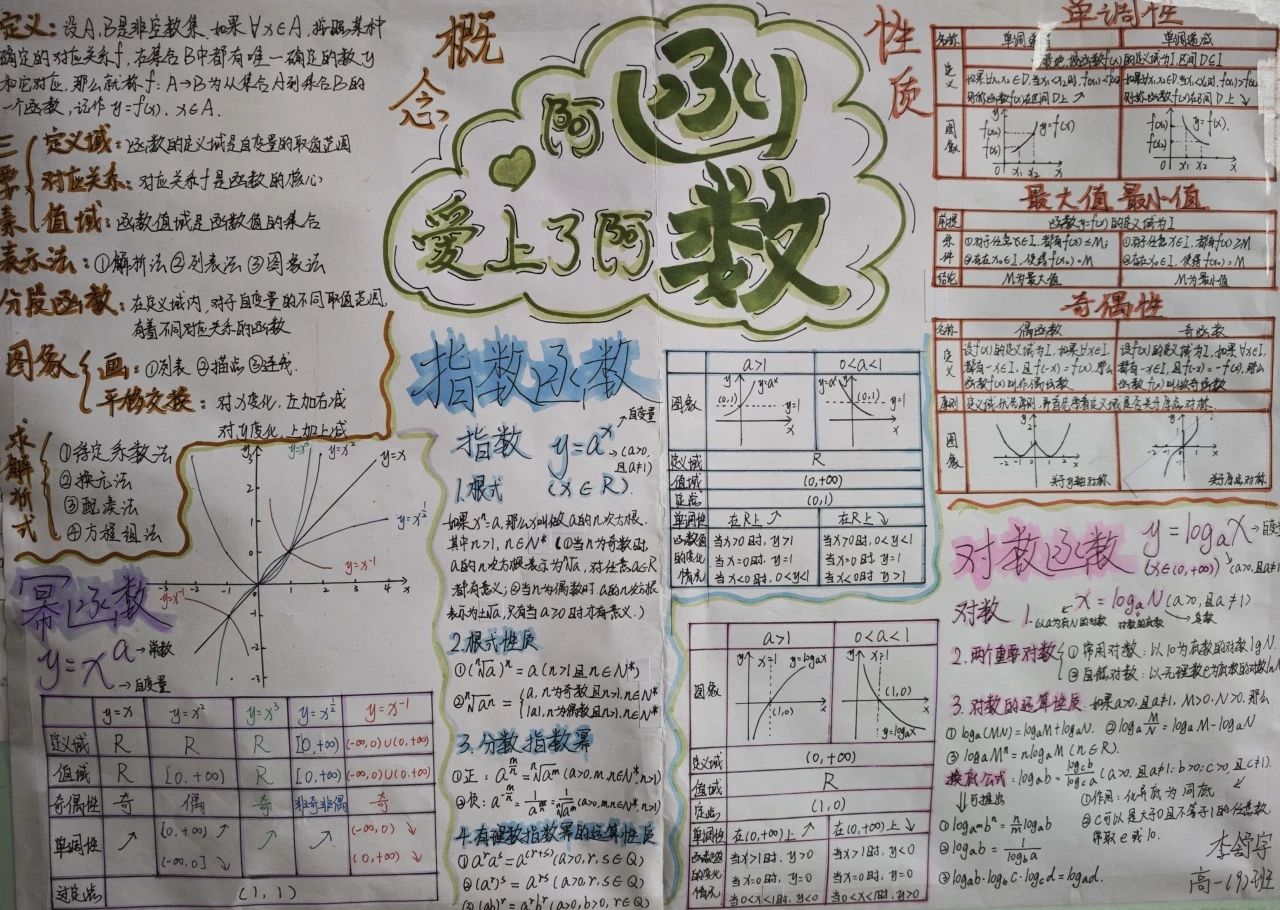 概念
阿函
爱上了阿数
性质
定义：设A，B是非空数集，如果∀x∈A，按照某种
确定的对应关系f，在集合B中都有唯一确定的数y
和它对应，那么就称f：A→B为从集合A到集合B的
一个函数，记作 y=f(x)，x∈A．
三要素
定义域：函数的定义域是自变量的取值范围
对应关系：对应关系f是函数的核心
值域：函数值域是函数值的集合
表示法：①解析法②列表法③图象法
分段函数：在定义域内，对于自变量的不同取值范围，
有着不同对应关系的函数
图象
画：①列表 ②描点 ③连线．
平移变换：对x变化，左加右减
对y变化，上加下减
求解析式
①待定系数法
②换元法
③配凑法
④方程组法
幂函数
y=x^a →常数
→自变量
y=x³ y=x² y=x
y=x^½
y=x⁻¹
y=x⁻¹
y=x y=x² y=x³ y=x^½ y=x⁻¹
定义域 R R R [0,+∞) (-∞,0)∪(0,+∞)
值域 R [0,+∞) R [0,+∞) (-∞,0)∪(0,+∞)
奇偶性 奇 偶 奇 非奇非偶 奇
单调性 ↗ [0,+∞)↗ ↗ ↗ (-∞,0)↘
(-∞,0]↘ (0,+∞)↘
过定点 (1,1)
指数函数
指数 y=a^x →自变量
→(a>0，且a≠1)
(x∈R)．
1.根式
如果xⁿ=a，那么x叫做a的n次方根．
其中n>1，n∈N* (①当n为奇数时，
a的n次方根表示为ⁿ√a，对任意a∈R
都有意义；②当n为偶数时a的n次方根
表示为±ⁿ√a，只有当a≥0时才有意义．)
2.根式性质
①(ⁿ√a)ⁿ=a(n>1且n∈N*)
②ⁿ√aⁿ={a，n为奇数且n>1，n∈N*
|a|，n为偶数且n>1，n∈N*
3.分数指数幂
①正：a^(m/n)=ⁿ√a^m (a>0,m,n∈N*,n>1)
②负：a^(-m/n)=1/a^(m/n)=1/ⁿ√a^m (a>0,m,n∈N*,n>1)
4.有理数指数幂的运算性质
①a^r a^s=a^(r+s)(a>0,r,s∈Q)
②(a^r)^s=a^rs(a>0,r,s∈Q)
③(ab)^r=a^r b^r(a>0,b>0,r∈Q)
a>1 0<a<1
图象 y=a^x (0,1) y=1 y=a^x (0,1) y=1
定义域 R
值域 (0,+∞)
定点 (0,1)
单调性 在R上↗ 在R上↘
函数值的变化情况
当x>0时，y>1 当x>0时，0<y<1
当x=0时，y=1 当x=0时，y=1
当x<0时，0<y<1 当x<0时，y>1
a>1 0<a<1
图象 x=1 y=logₐx (1,0) x=1 (1,0) y=logₐx
定义域 (0,+∞)
值域 R
定点 (1,0)
单调性 在(0,+∞)上↗ 在(0,+∞)上↘
函数值的变化情况
当x>1时，y>0 当x>1时，y<0
当x=0时，y=0 当x=0时，y=0
当0<x<1时，y<0 当0<x<1时，y>0
单调性
名称 单调递减
定义 函数f(x)的定义域为I，区间D⊆I
如果∀x₁,x₂∈D，当x₁<x₂时，f(x₁)>f(x₂)
图象 y=f(x) f(x₂) f(x₁) x₁ x₂ y=f(x) f(x₁) f(x₂) x₁ x₂
最大值 最小值
前提 函数y=f(x)的定义域为I
条件 ①对于任意x∈I，都有f(x)≤M； ①对于任意x∈I，都有f(x)≥M
②存在x₀∈I，使得f(x₀)=M ②存在x₀∈I，使得f(x₀)=M
结论 M为最大值 M为最小值
奇偶性
名称 偶函数 奇函数
定义 设f(x)的定义域为I，如果∀x∈I， 设f(x)的定义域为I，如果∀x∈I，
都有-x∈I，且f(-x)=f(x)，那么 都有-x∈I，且f(-x)=-f(x)，那么
函数f(x)叫作偶函数 函数f(x)叫做奇函数
原则 定义域优先原则，即首先要看定义域是否关于原点对称．
图象 关于y轴对称 关于原点对称
对数函数 y=logₐx →自变
(x∈(0,+∞)) (a>0，且a≠1
对数 1. x=logₐN(a>0，且a≠1)
以a为底N的对数 对数的底数 真数
2.两个重要对数
①常用对数：以10为底数的对数lgN．
②自然对数：以无理数e为底数的对数ln
3.对数的运算性质 如果a>0，且a≠1，M>0，N>0，那么
①logₐ(MN)=logₐM+logₐN．②logₐM/N=logₐM-logₐN
③logₐMⁿ=nlogₐM(n∈R)．
换底公式：logₐb=log_c b/log_c a(a>0，且a≠1；b>0；c>0，且c≠1)．
可推出
①作用：化异底为同底
②C可以是大于0且不等于1的任意数，
常取e或10．
①logₐᵐbⁿ=n/m logₐb
②logₐb=1/log_b a
③logₐb·log_b c·log_c d=logₐd．
李舒宇
高一(9)班